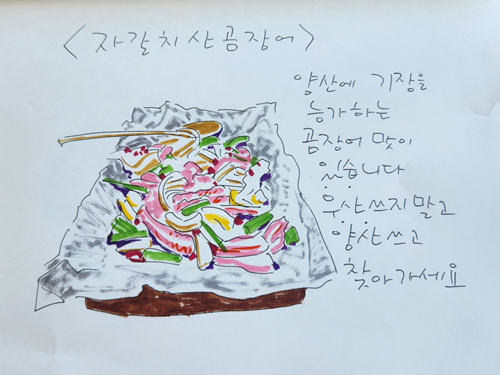 <자갈치산곰장어>
양산에 기장을
능가하는
곰장어 맛이
있습니다
우산쓰지말고
양산쓰고
찾아가세요